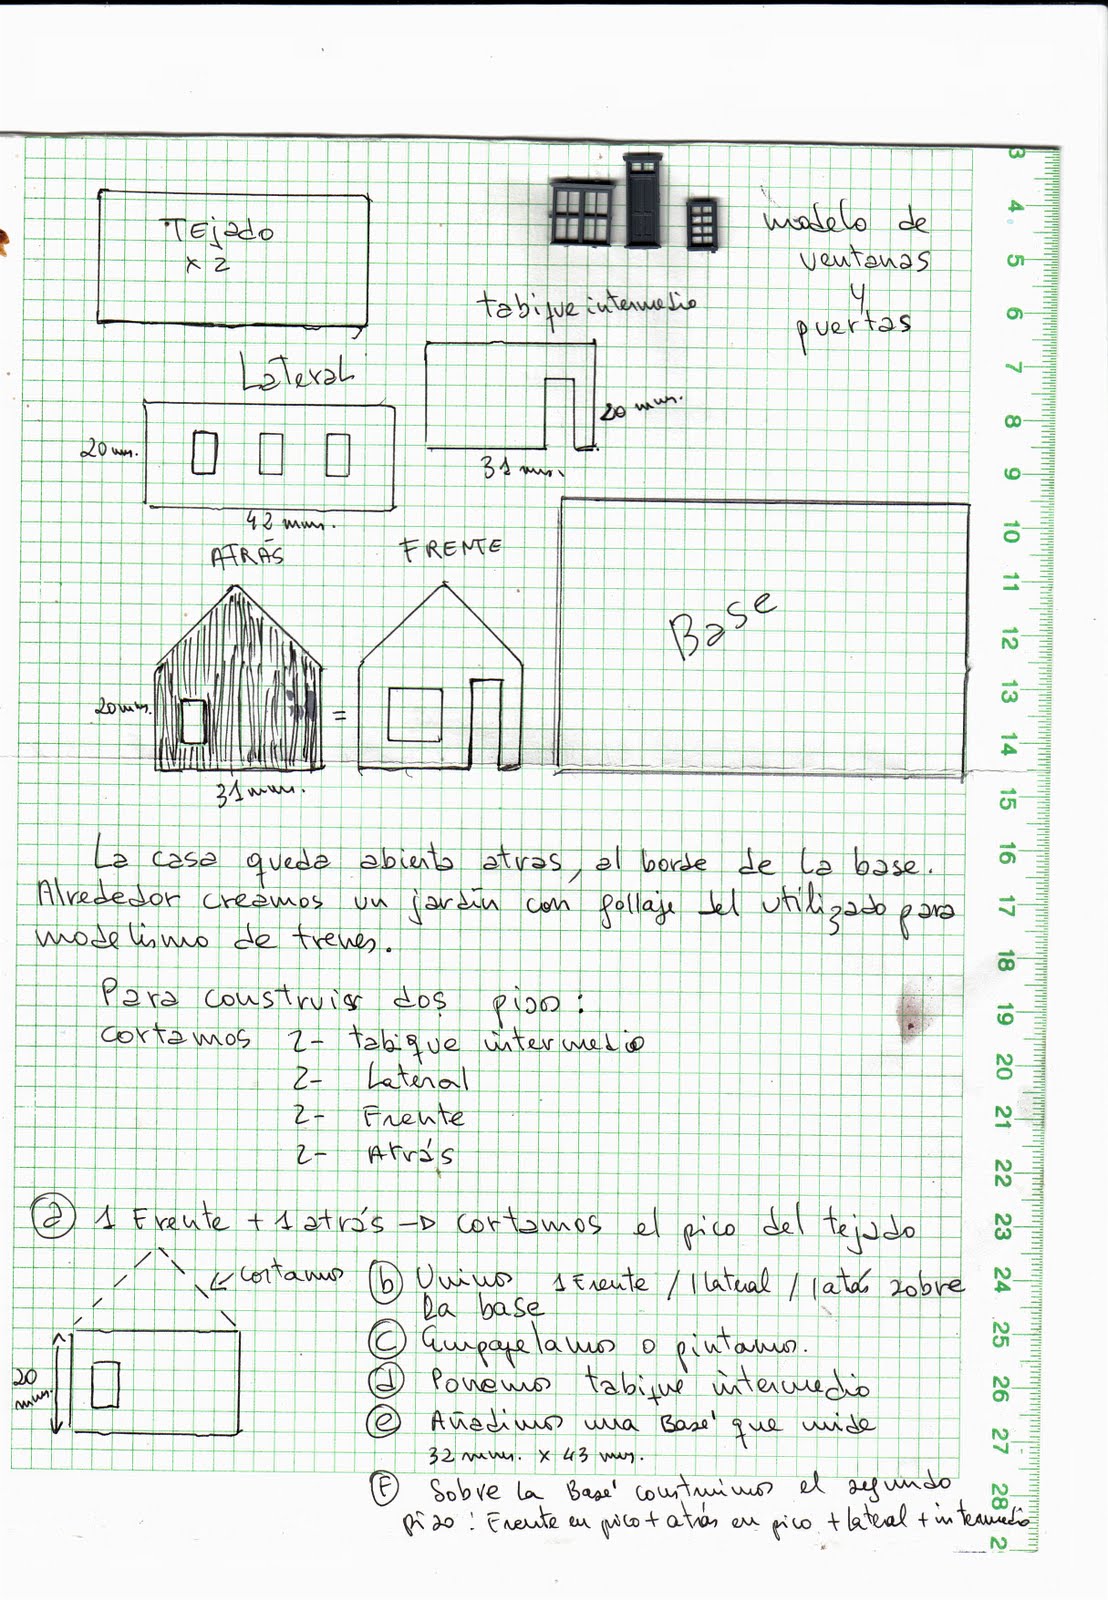 Tejado
x 2
modelo de
ventanas
y
puertas
tabique intermedio
20 mm.
31 mm.
Lateral
20 mm.
42 mm.
ATRÁS
FRENTE
20 mm.
=
31 mm.
Base
La casa queda abierta atras, al borde de la base.
Alrededor creamos un jardín con follaje del utilizado para
modelismo de trenes.
Para construir dos pisos:
cortamos 2- tabique intermedio
2- Lateral
2- Frente
2- Atrás
a 1 Frente + 1 atrás → cortamos el pico del tejado
cortamos
20
mm.
b Unimos 1 Frente / 1 lateral / 1 atás sobre
la base
c Empapelamos o pintamos.
d Ponemos tabique intermedio
e Añadimos una Base' que mide
32 mm. x 43 mm.
F Sobre la Base' construimos el segundo
piso: Frente en pico + atrás en pico + lateral + intermedio
3
4
5
6
7
8
9
10
11
12
13
14
15
16
17
18
19
20
21
22
23
24
25
26
27
28
2